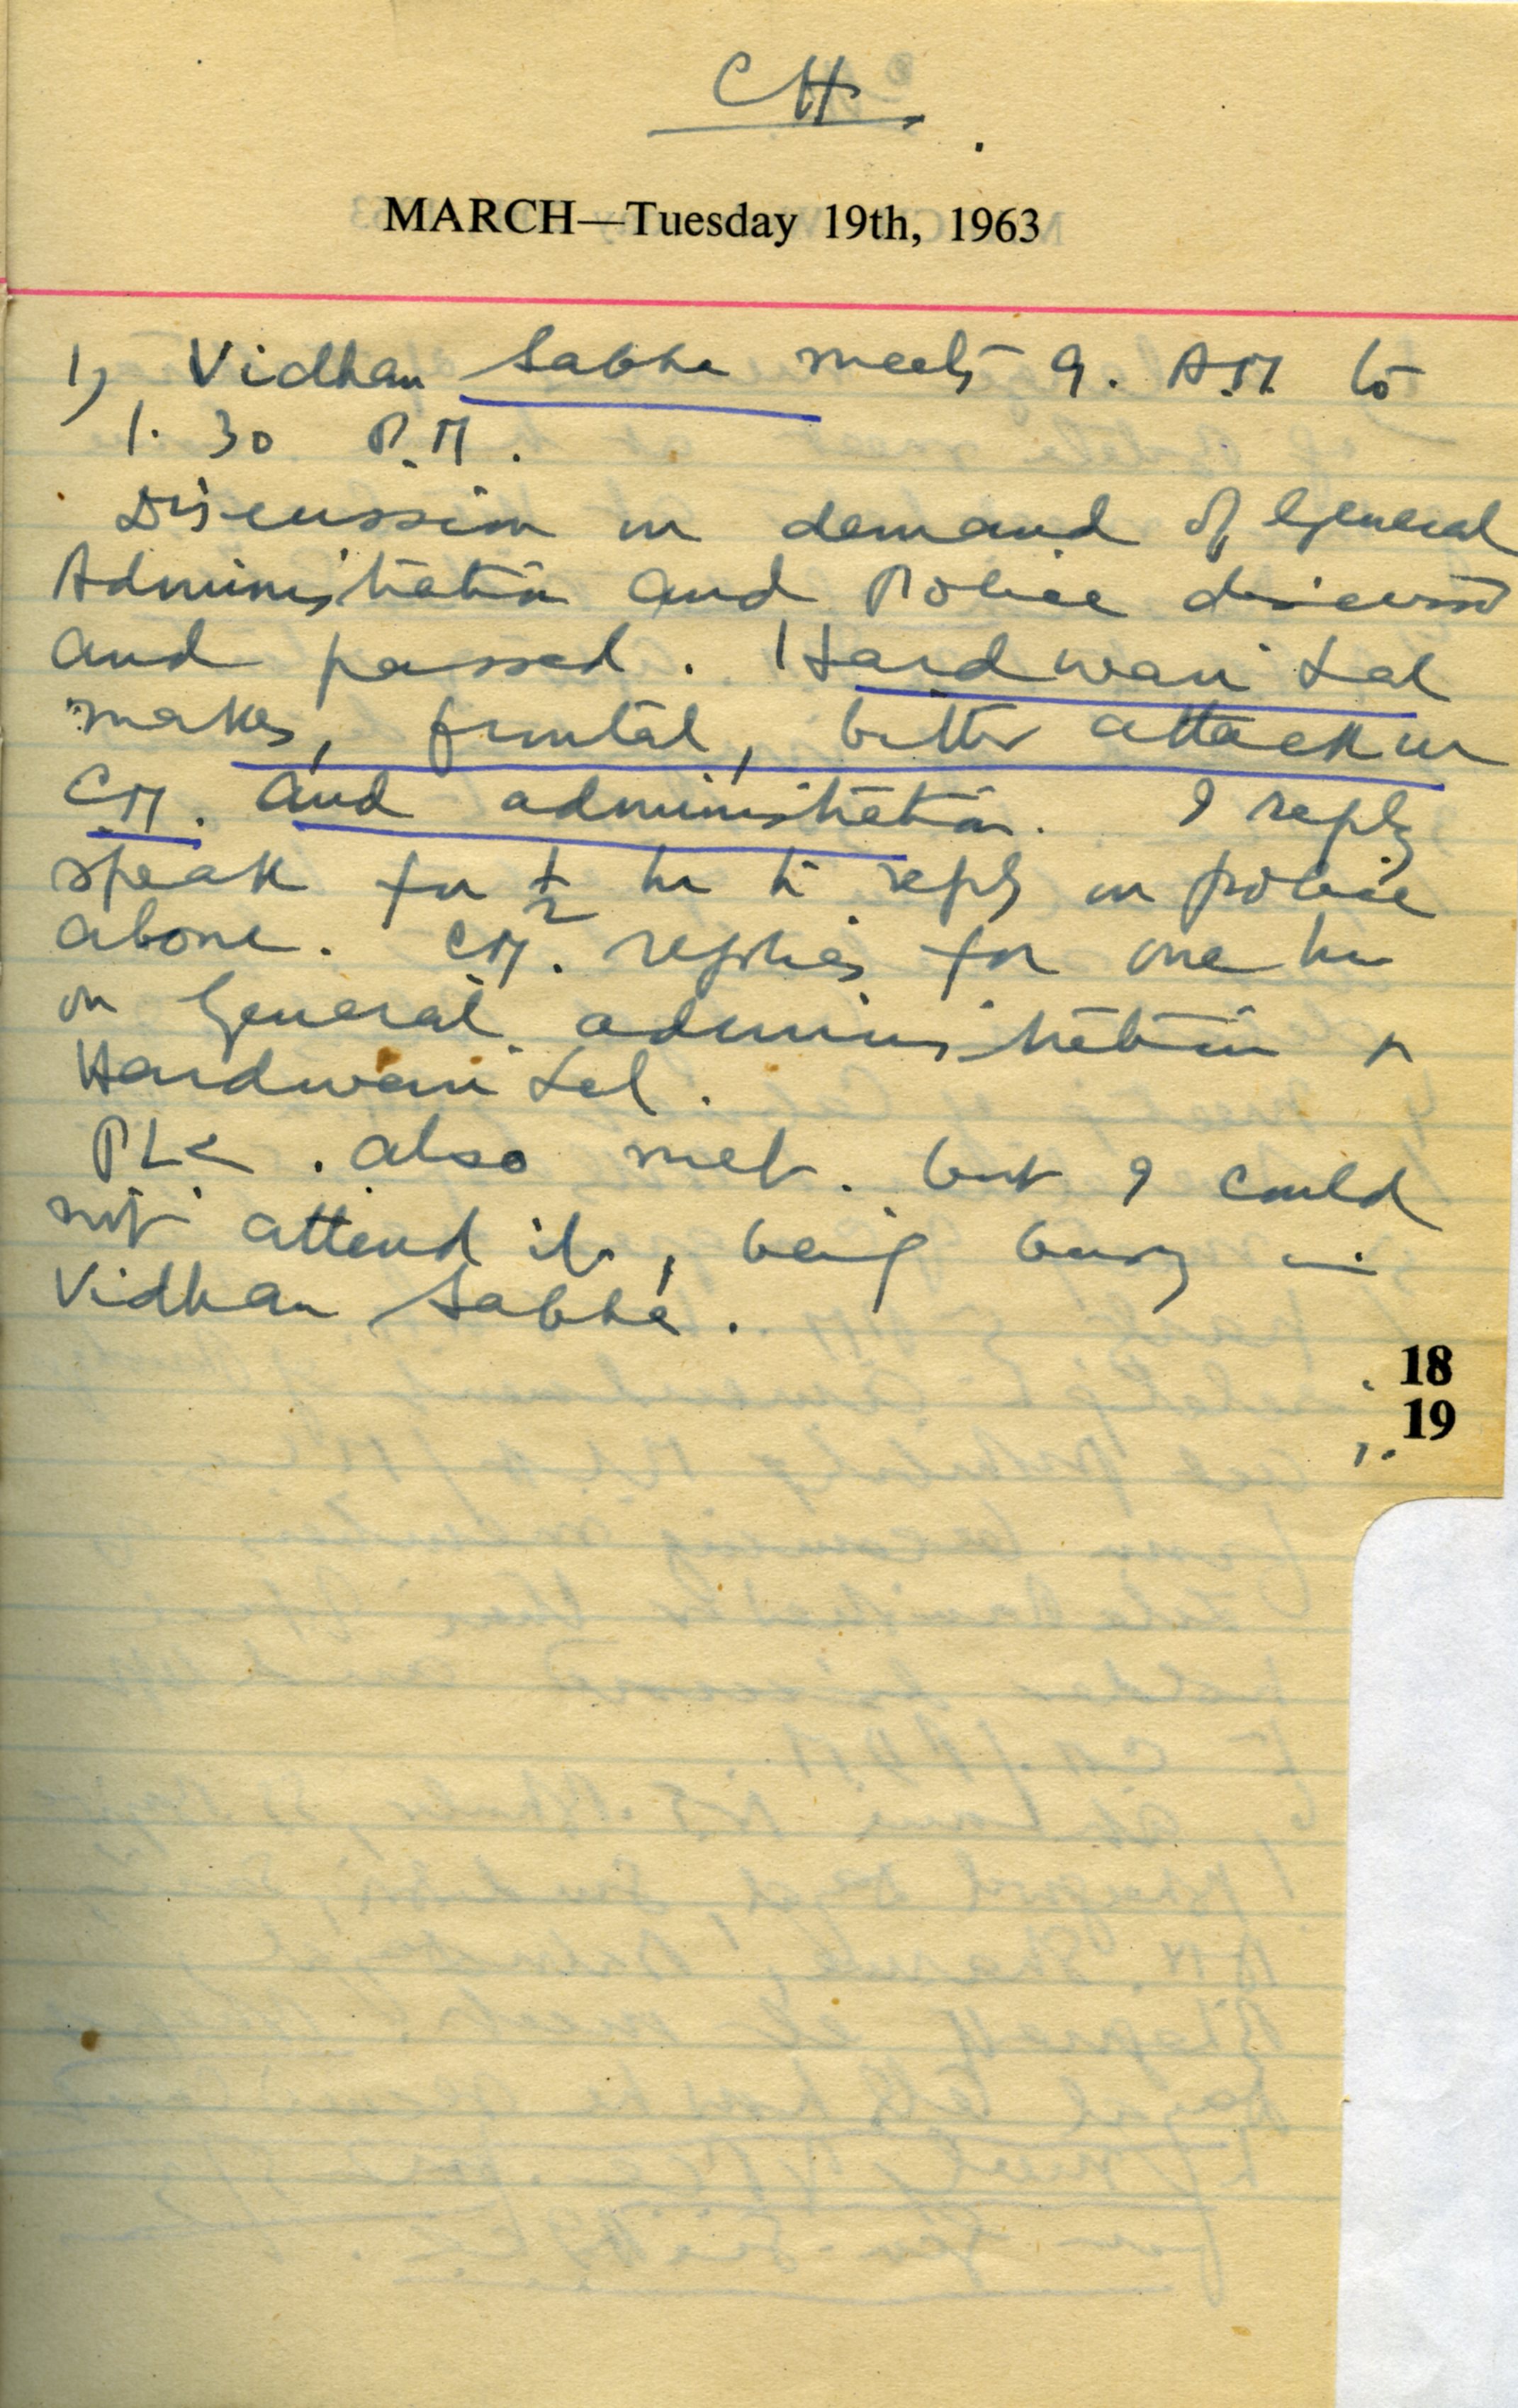 CH.
MARCH—Tuesday 19th, 1963
1) Vidhan Sabha meets 9. A.M. to
1. 30 P.M.
Discussion on demand of General
Administration and Police discussed
and passed. Hardwari Lal
makes, frontal, bitter attack on
C.M. and administration. I reply
speak for ½ hr to reply on police
alone. CM. replies for one hr
on General administration &
Hardwari Lal.
PLC. also met. but I could
not attend it, being busy in
Vidhan Sabha.
18
19